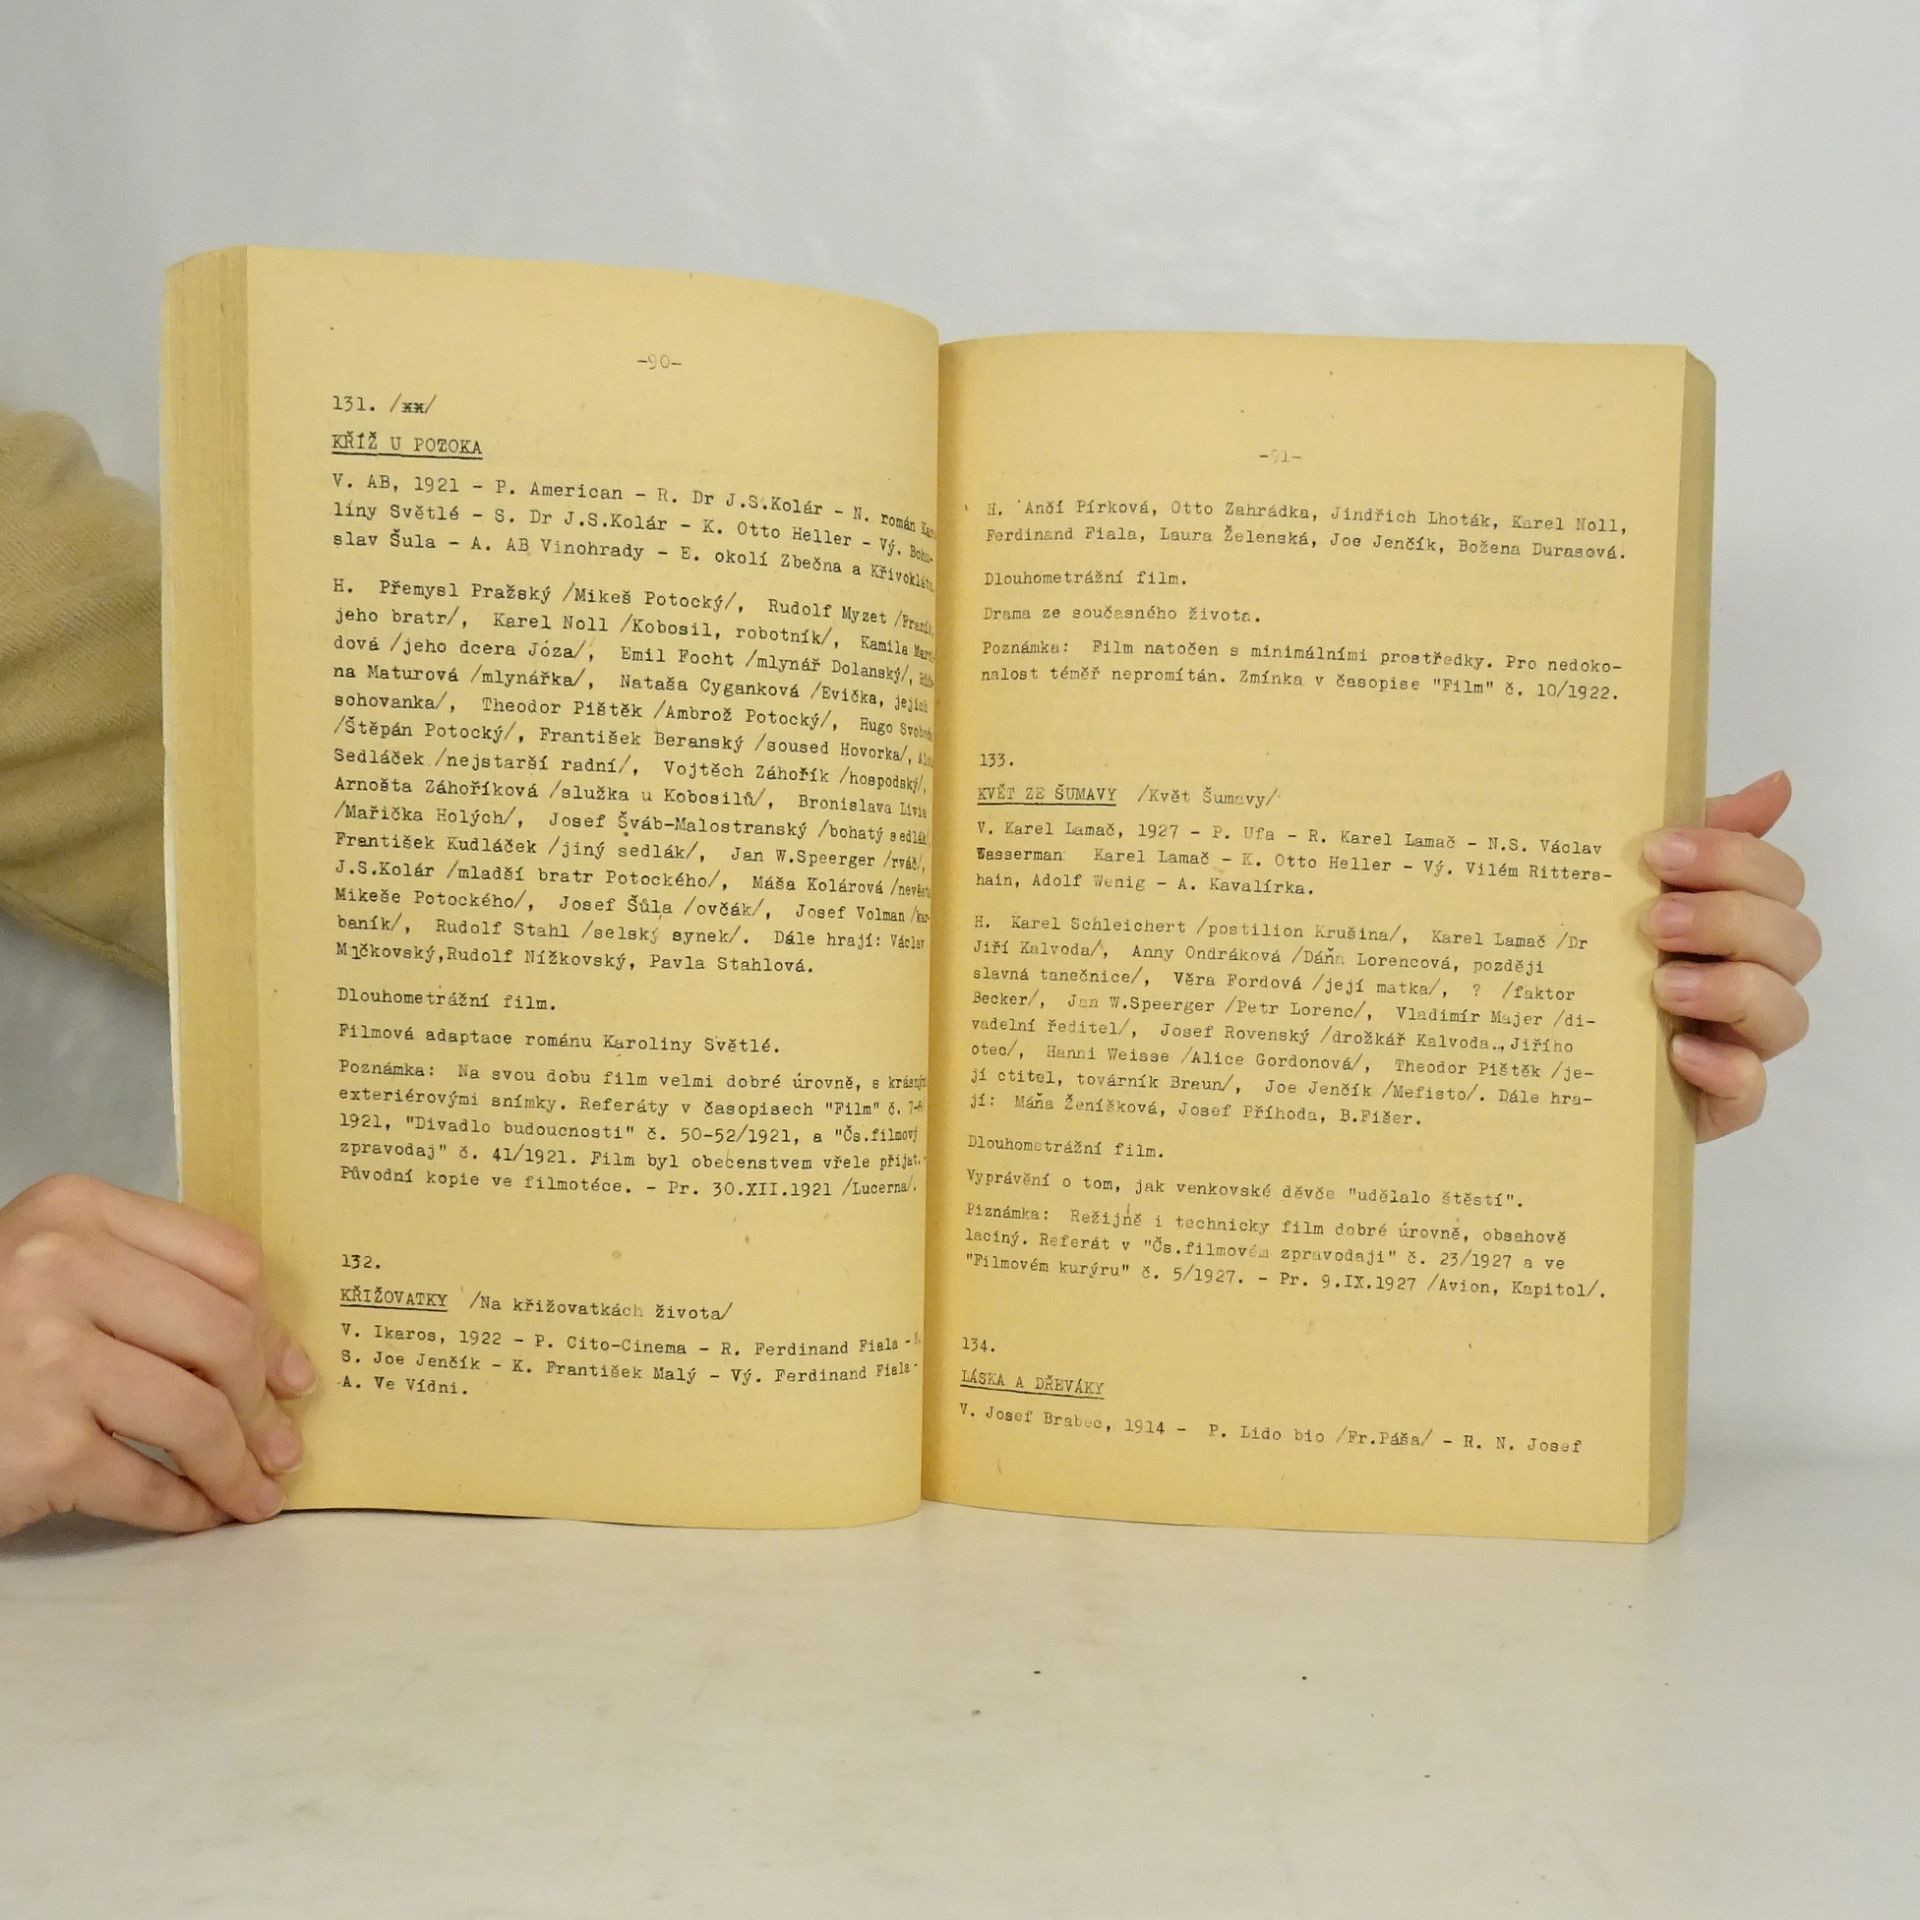 -90-
131. /xx/
KŘÍŽ U POTOKA
V. AB, 1921 - P. American - R. Dr J.S.Kolár - N. román
líny Světlé - S. Dr J.S.Kolár - K. Otto Heller - Vý.
slav Šula - A. AB Vinohrady - E. okolí Zbečna a
H. Přemysl Pražský /Mikeš Potocký/, Rudolf Myzet
jeho bratr/, Karel Noll /Kobosil, robotník/, Kamila
dová /jeho dcera Józa/, Emil Focht /mlynář Dolanský/,
na Maturová /mlynářka/, Nataša Cyganková /Evička, jejich
schovanka/, Theodor Pištěk /Ambrož Potocký/, Hugo
/Štěpán Potocký/, František Beranský /soused Hovorka/,
Sedláček /nejstarší radní/, Vojtěch Záhořík /hospodský/,
Arnošta Záhoříková /služka u Kobosilů/, Bronislava Livia
/Mařička Holých/, Josef Šváb-Malostranský /bohatý sedlák
František Kudláček /jiný sedlák/, Jan W.Speerger /rváč/,
J.S.Kolár /mladší bratr Potockého/, Máša Kolárová
Mikeše Potockého/, Josef Šůla /ovčák/, Josef Volman
baník/, Rudolf Stahl /selský synek/. Dále hrají: Václav
Mlčkovský,Rudolf Nížkovský, Pavla Stahlová.
Dlouhometrážní film.
Filmová adaptace románu Karoliny Světlé.
Poznámka: Na svou dobu film velmi dobré úrovně, s
exteriérovými snímky. Referáty v časopisech "Film" č.
1921, "Divadlo budoucnosti" č. 50-52/1921, a "Čs.filmový
zpravodaj" č. 41/1921. Film byl obecenstvem vřele přijat.
Původní kopie ve filmotéce. - Pr. 30.XII.1921 /Lucerna/.
132.
KŘIŽOVATKY /Na křižovatkách života/
V. Ikaros, 1922 - P. Cito-Cinema - R. Ferdinand Fiala -
S. Joe Jenčík - K. František Malý - Vý. Ferdinand Fiala -
A. Ve Vídni.
-91-
H. Ančí Pírková, Otto Zahrádka, Jindřich Lhoták, Karel Noll,
Ferdinand Fiala, Laura Želenská, Joe Jenčík, Božena Durasová.
Dlouhometrážní film.
Drama ze současného života.
Poznámka: Film natočen s minimálními prostředky. Pro nedoko-
nalost téměř nepromítán. Zmínka v časopise "Film" č. 10/1922.
133.
KVĚT ZE ŠUMAVY /Květ Šumavy/
V. Karel Lamač, 1927 - P. Ufa - R. Karel Lamač - N.S. Václav
Wasserman Karel Lamač - K. Otto Heller - Vý. Vilém Ritters-
hain, Adolf Wenig - A. Kavalírka.
H. Karel Schleichert /postilion Krušina/, Karel Lamač /Dr
Jiří Kalvoda/, Anny Ondráková /Dáňa Lorencová, později
slavná tanečnice/, Věra Fordová /její matka/, ? /faktor
Becker/, Jan W.Speerger /Petr Lorenc/, Vladimír Majer /di-
vadelní ředitel/, Josef Rovenský /drožkář Kalvoda., Jiřího
otec/, Hanni Weisse /Alice Gordonová/, Theodor Pištěk /je-
jí ctitel, továrník Braun/, Joe Jenčík /Mefisto/. Dále hra-
jí: Máňa Ženíšková, Josef Příhoda, B.Fišer.
Dlouhometrážní film.
Vyprávění o tom, jak venkovské děvče "udělalo štěstí".
Piznámka: Režijně i technicky film dobré úrovně, obsahově
laciný. Referát v "Čs.filmovém zpravodaji" č. 23/1927 a ve
"Filmovém kurýru" č. 5/1927. - Pr. 9.IX.1927 /Avion, Kapitol/.
134.
LÁSKA A DŘEVÁKY
V. Josef Brabec, 1914 - P. Lido bio /Fr.Páša/ - R. N. Josef